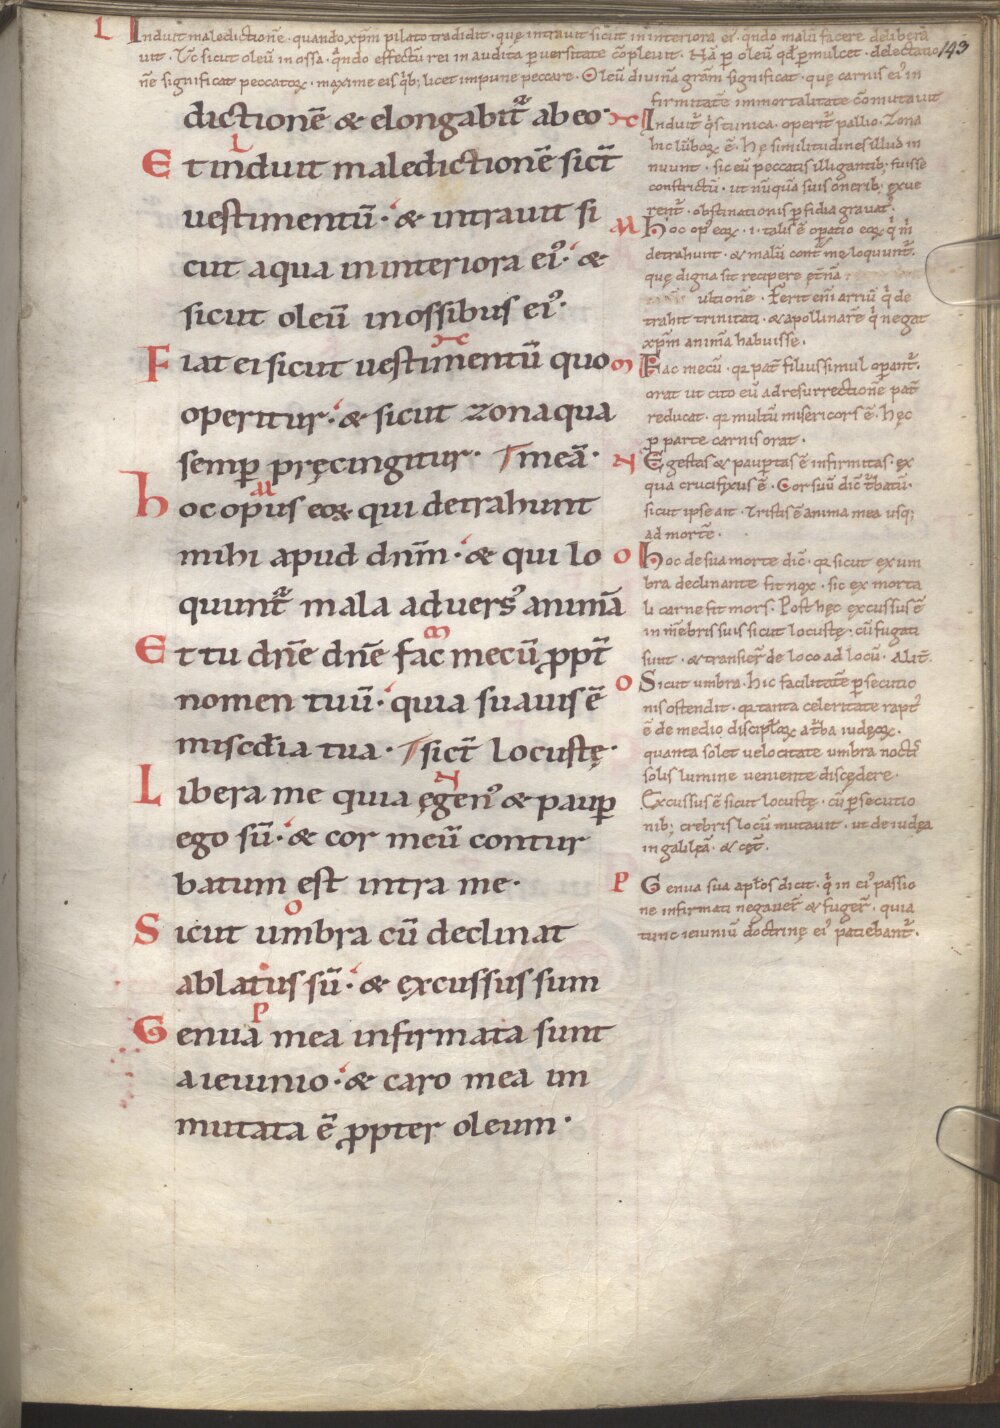 L Induit maledictionē · quando xp̄m pilato tradidit · quę intrauit sicut in interiora ei᷒ · q̄ndo malū facere deliberā
uit · Tc̄ sicut oleū in ossa · q̄ndo effectū rei inaudita ꝑuersitate cōpleuit · Nā ꝑ oleū qd̄ ꝑmulcet · delectatio
143
nē significat peccatoꝝ · maxime eis qͥb; licet impune peccare · Oleū diuinā gr̄am significat · quę carnis ei᷒ in
firmitatē immortalitate cōmutauit
dictionē & elongabit᷑ ab eo ·
E t induit maledictionē sict̄
L
uestimentū · & intrauit si
cut aqua in interiora ei᷒ · &
sicut oleū in ossibus ei᷒ ·
F iat ei sicut uestimentū quo
operitur · & sicut zona qua
semꝑ pręcingitur · meā ·
h oc opus eoꝝ qui detrahunt
M
mihi apud dn̄m · & qui lo
quunt᷑ mala aduers᷒ animā
E t tu dn̄e dn̄e fac mecū ꝓpt̄
m
nomen tuū · quia suauis ē
misc̄dia tua · sict̄ locustę ·
L ibera me quia ęgen᷒ & pauꝑ
N
ego sū · & cor meū contur
batum est intra me ·
S icut umbra cū declinat
O
ablatus sū · & ęxcussus sum
G enua mea infirmata sunt
P
a ieiunio · & caro mea im
mutata ē ꝓpter oleum ·
Induit᷑ qͥs tunica · operit᷑ pallio · Zona
hic lūboꝝ ē · Hę similitudines illud in
nuunt · sic eū peccatis illigantib; fuisse
constrictū · ut nūquā suis onerib; exue
rent᷑ · obstinationis ꝑfidia grauat᷑ ·
M hoc op᷒ eoꝝ · i · talis ē oꝑatio eoꝝ qͥ m̄
detrahunt · & malū cont᷑ me loquunt᷑ ·
quę digna sit recipere ęt̄na
ultionē · Ferit eni arriū qͥ de
trahit trinitati · & apollinarē qͥ negat
xp̄m animā habuisse ·
m Fac mecū · qꝛ pat᷑ filius simul oꝑant᷑ ·
orat ut cito eū ad resurrectionē pat᷑
reducat · qꝛ multū misericors ē · Hęc
ꝓ parte carnis orat ·
N Egestas & pauꝑtas ē infirmitas · ex
qua crucifixus ē · Cor suū dic̄ t᷑batū ·
sicut ipse ait · Tristis ē anima mea usq;
ad mortē ·
O hoc de sua morte dic̄ · qꝛ sicut ex um
bra declinante fit nox · sic ex morta
li carne fit mors · Post hęc ęxcussus ē
in mēbris suis sicut locustę · cū fugati
sunt · & transier̄ de loco ad locū · Alit̄
O Sicut umbra · hic facilitatē ꝑsecutio
nis ostendit · qꝛ tanta celeritate rapt᷒
ē de medio discipłoꝝ a t᷑ba iudęoꝝ ·
quanta solet uelocitate umbra noctis
solis lumine ueniente discędere ·
Excussus ē sicut locustę · cū ꝑsecutio
nib; crebris locū mutauit · ut de iudęa
in galilęā · & cęt̄ ·
P Genua sua apl̄os dicit · qͥ in ei᷒ passio
ne infirmati negauer̄ & fuger̄ · quia
tunc ieiuniū doctrinę ei᷒ patiebant᷑ ·